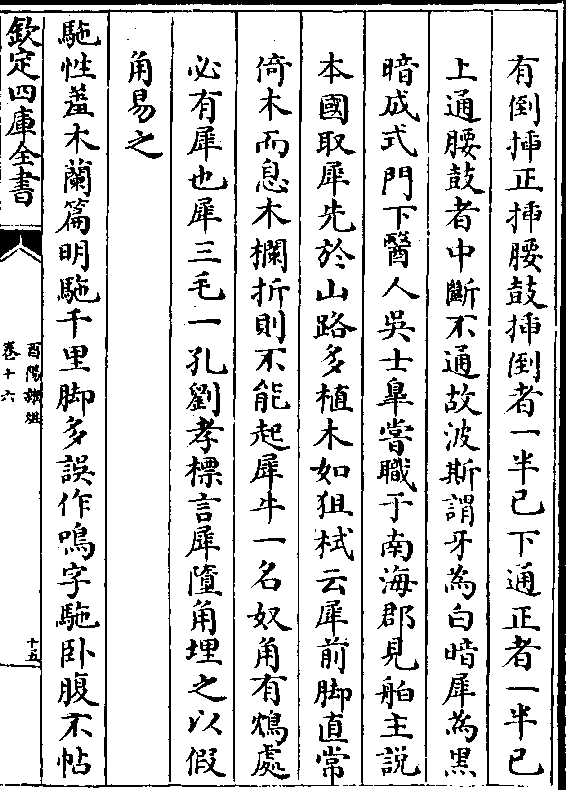 有倒揷正揷腰鼓揷倒者一半已下通正者一半已
上通腰鼓者中斷不通故波斯謂牙為白暗犀為黒
暗成式門下醫人吳士臯嘗職于南海郡見舶主説
本國取犀先於山路多植木如狙杙云犀前脚直常
倚木而息木欄折則不能起犀牛一名奴角有鴆處
必有犀也犀三毛一孔劉孝標言犀墮角埋之以假
角易之
駞性羞木蘭篇明駞千里脚多誤作鳴字駞卧腹不帖
欽定四庫全書
酉陽雜俎
卷十六
十五